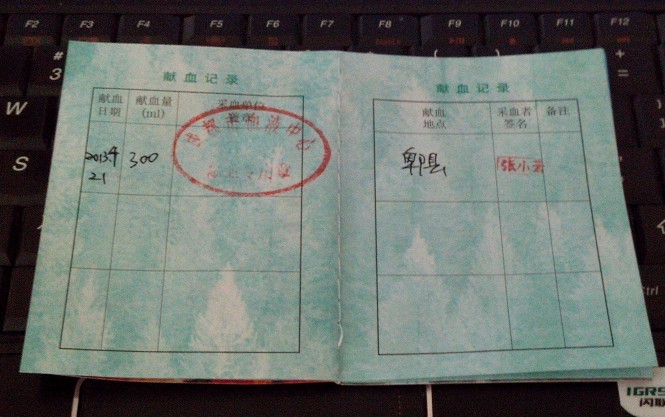 F2
F3
F4
F5
F6
F7
F8
F9
F10
F11
F12
#
3
+
=
W
S
献血记录
献血日期
献血量(ml)
采血单位
2013年
21
300
献血记录
献血地点
采血者签名
备注
郫县
张小云
Ctrl
IGRS
闪联